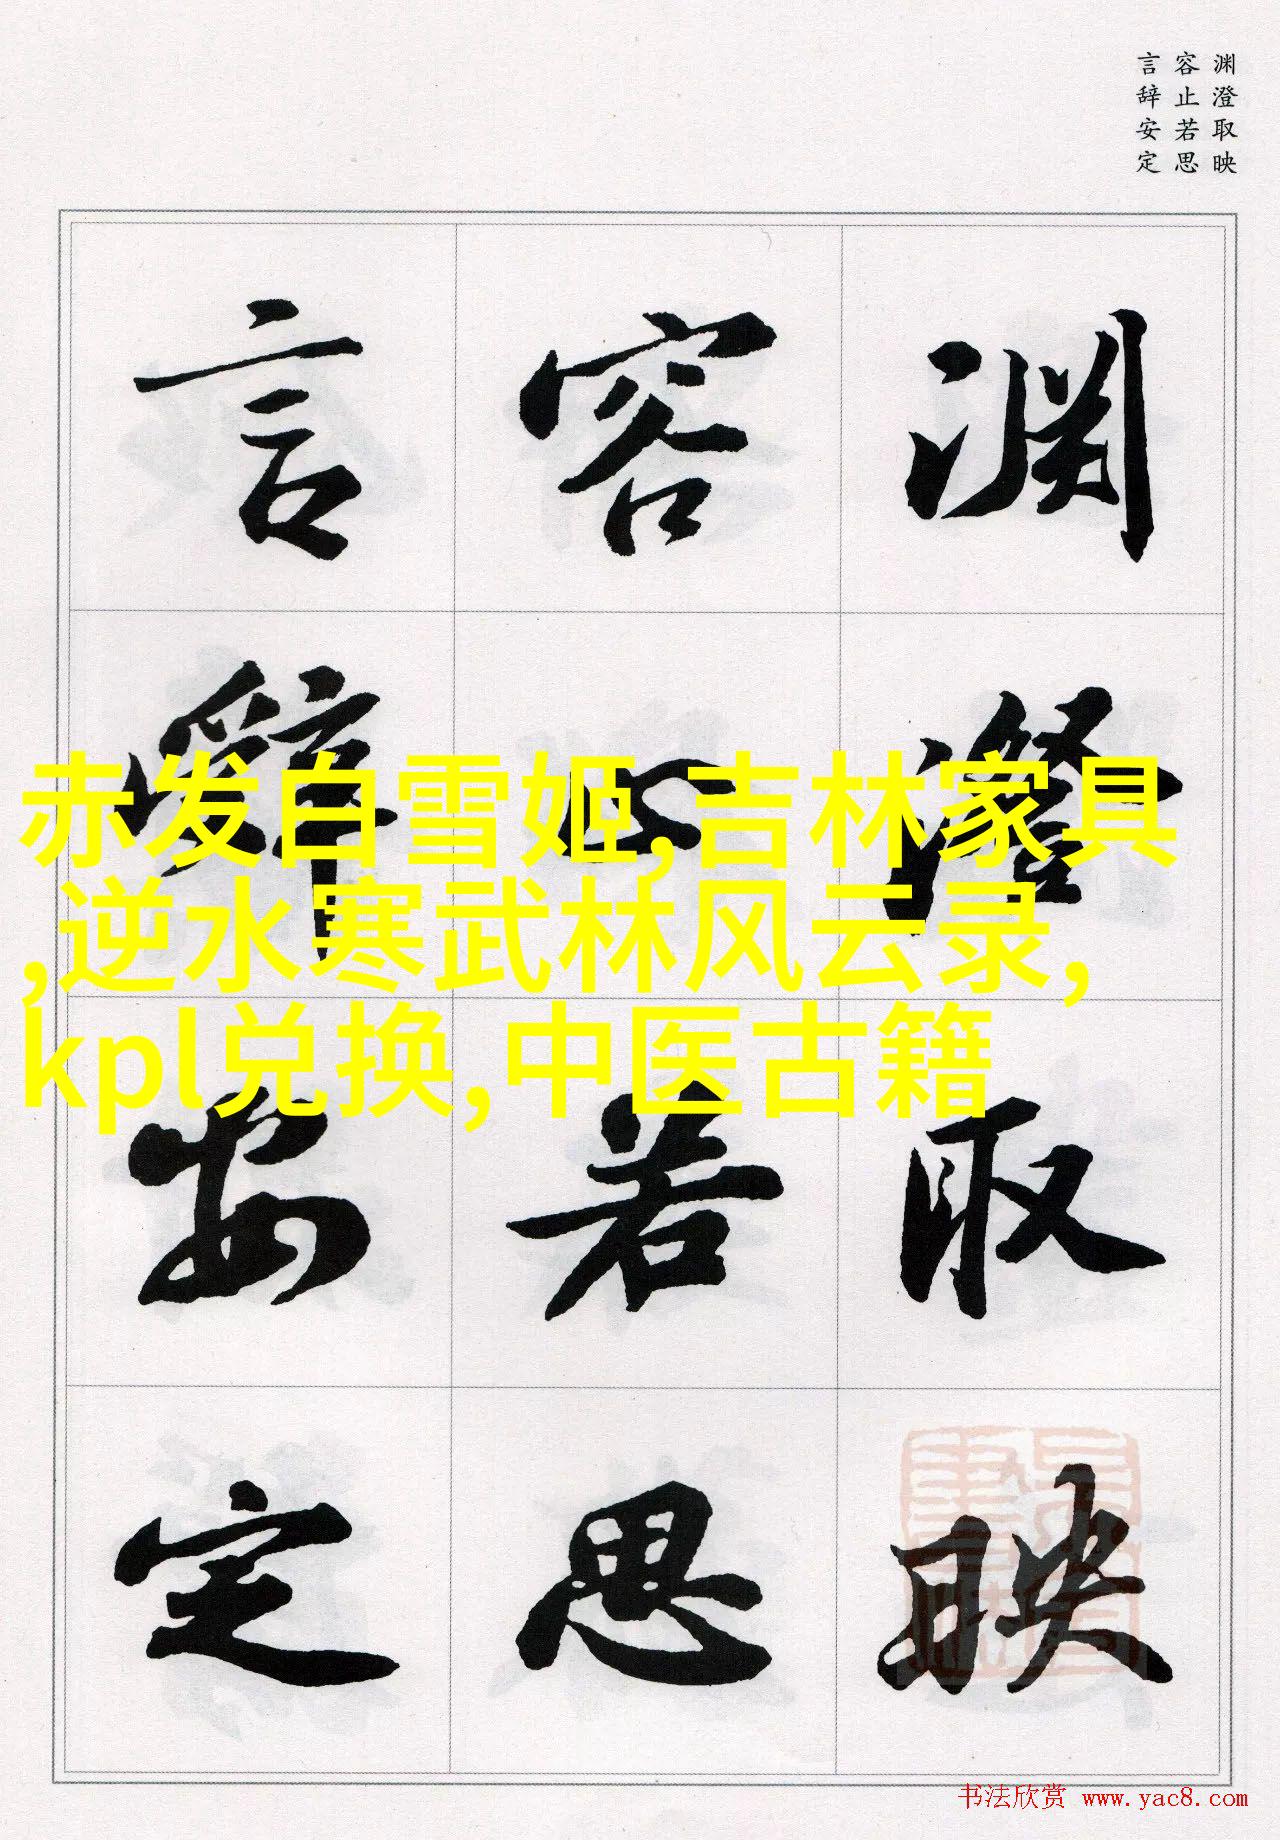 渊澄取映
容止若思
言辞安定
渊澄取映
容止若思
言辞安定
赤发白雪姬,吉林家具
,逆水寒武林风云录,
kpl兑换,中医古籍
书法欣赏 www.yac8.com